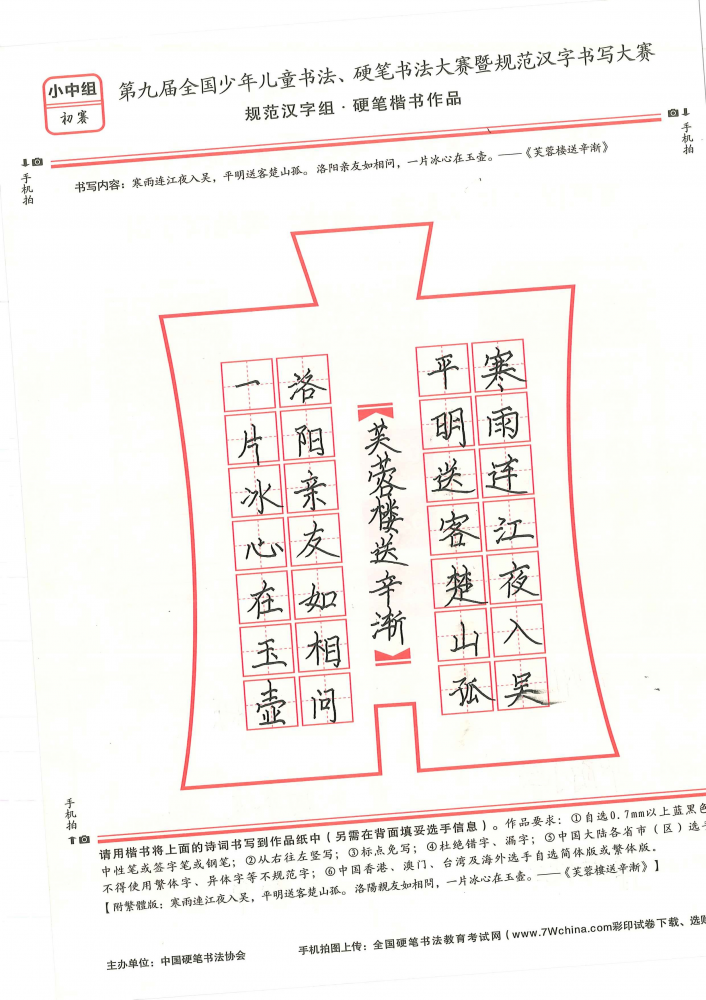 小中组
初赛
第九届全国少年儿童书法、硬笔书法大赛暨规范汉字书写大赛
规范汉字组·硬笔楷书作品
手机拍
手机拍
书写内容：寒雨连江夜入吴，平明送客楚山孤。洛阳亲友如相问，一片冰心在玉壶。——《芙蓉楼送辛渐》
寒雨连江夜入吴
平明送客楚山孤
芙蓉楼送辛渐
洛阳亲友如相问
一片冰心在玉壶
手机拍
请用楷书将上面的诗词书写到作品纸中（另需在背面填妥选手信息）。作品要求：①自选0.7mm以上蓝黑色
中性笔或签字笔或钢笔；②从右往左竖写；③标点免写；④杜绝错字、漏字；⑤中国大陆各省市（区）选手
不得使用繁体字、异体字等不规范字；⑥中国香港、澳门、台湾及海外选手自选简体版或繁体版．
【附繁體版：寒雨連江夜入吳，平明送客楚山孤。洛陽親友如相問，一片冰心在玉壺。——《芙蓉樓送辛漸》】
主办单位：中国硬笔书法协会
手机拍图上传：全国硬笔书法教育考试网（www.7Wchina.com彩印试卷下载、选购